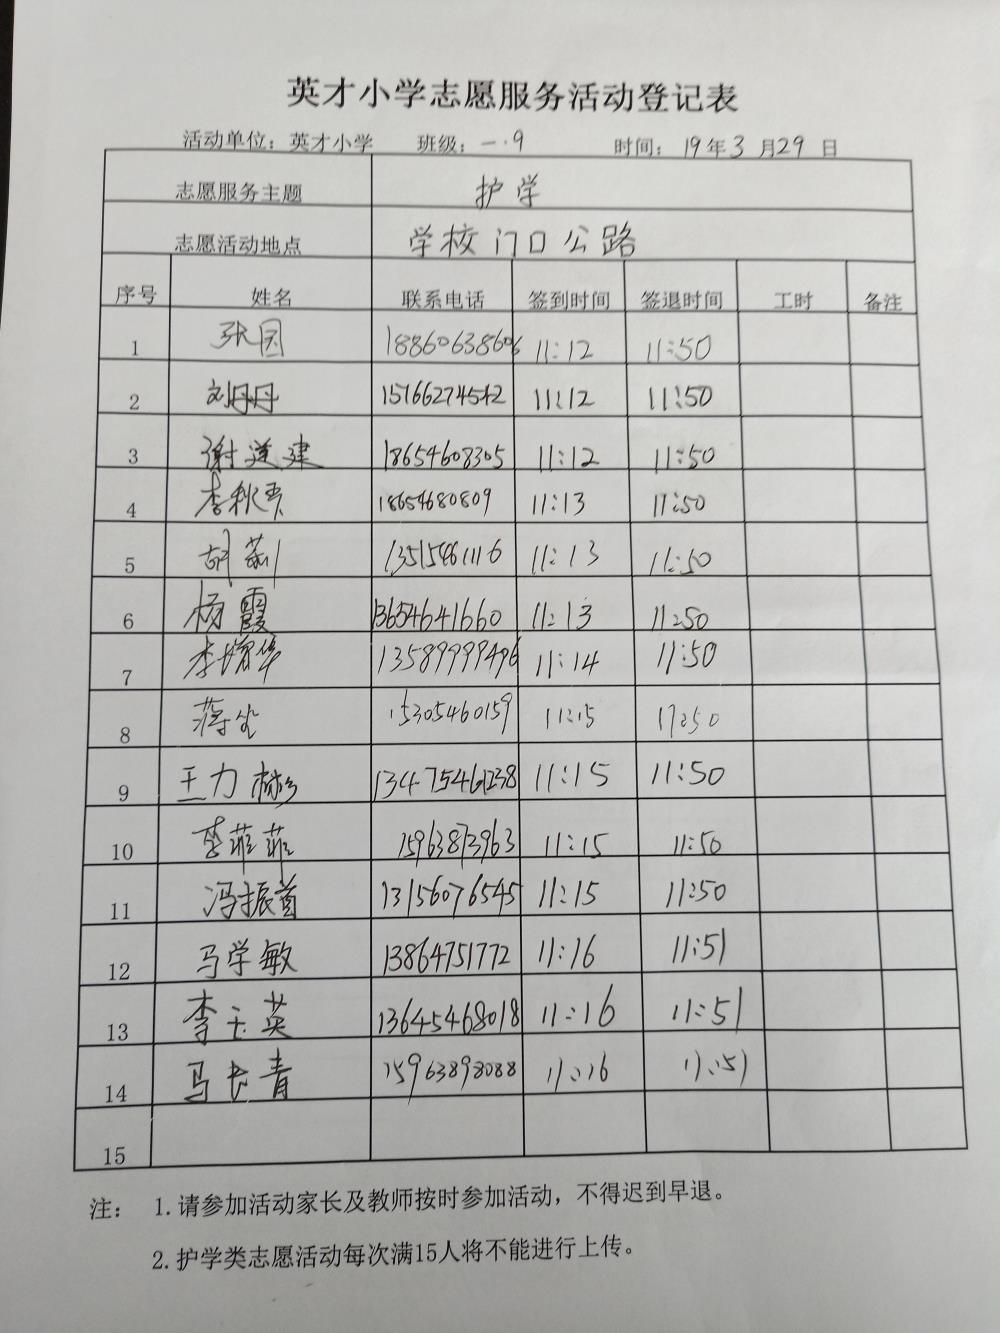 英才小学志愿服务活动登记表
活动单位：英才小学 班级：一.9 时间：19年3月29日
志愿服务主题 护学
志愿活动地点 学校门口公路
序号 姓名 联系电话 签到时间 签退时间 工时 备注
1 张园 18860638606 11:12 11:50
2 刘丹丹 15766274542 11:12 11:50
3 谢道建 18654608305 11:12 11:50
4 李秋 18654680809 11:13 11:50
5 胡莉 13515461116 11:13 11:50
6 杨霞 13654641660 11:13 11:50
7 李增华 13589999496 11:14 11:50
8 蒋 15305460159 11:15 11:50
9 王力彬 13475461238 11:15 11:50
10 李菲菲 15963873963 11:15 11:50
11 冯振首 13156076545 11:15 11:50
12 马学敏 13864751772 11:16 11:51
13 李玉英 13645468018 11:16 11:51
14 马长青 15963898088 11:16 11:51
15
注： 1.请参加活动家长及教师按时参加活动，不得迟到早退。
2.护学类志愿活动每次满15人将不能进行上传。